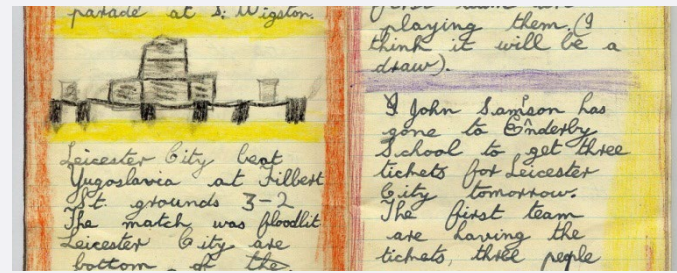 parade at S. Wigston.
Leicester City beat
Yugoslavia at Filbert
St. grounds 3-2
The match was floodlit
Leicester City are
bottom of the
playing them. (I
think it will be a
draw).
I John Samson has
gone to Enderby
School to get three
tickets for Leicester
City tomorrow.
The first team
are having the
tickets, three people